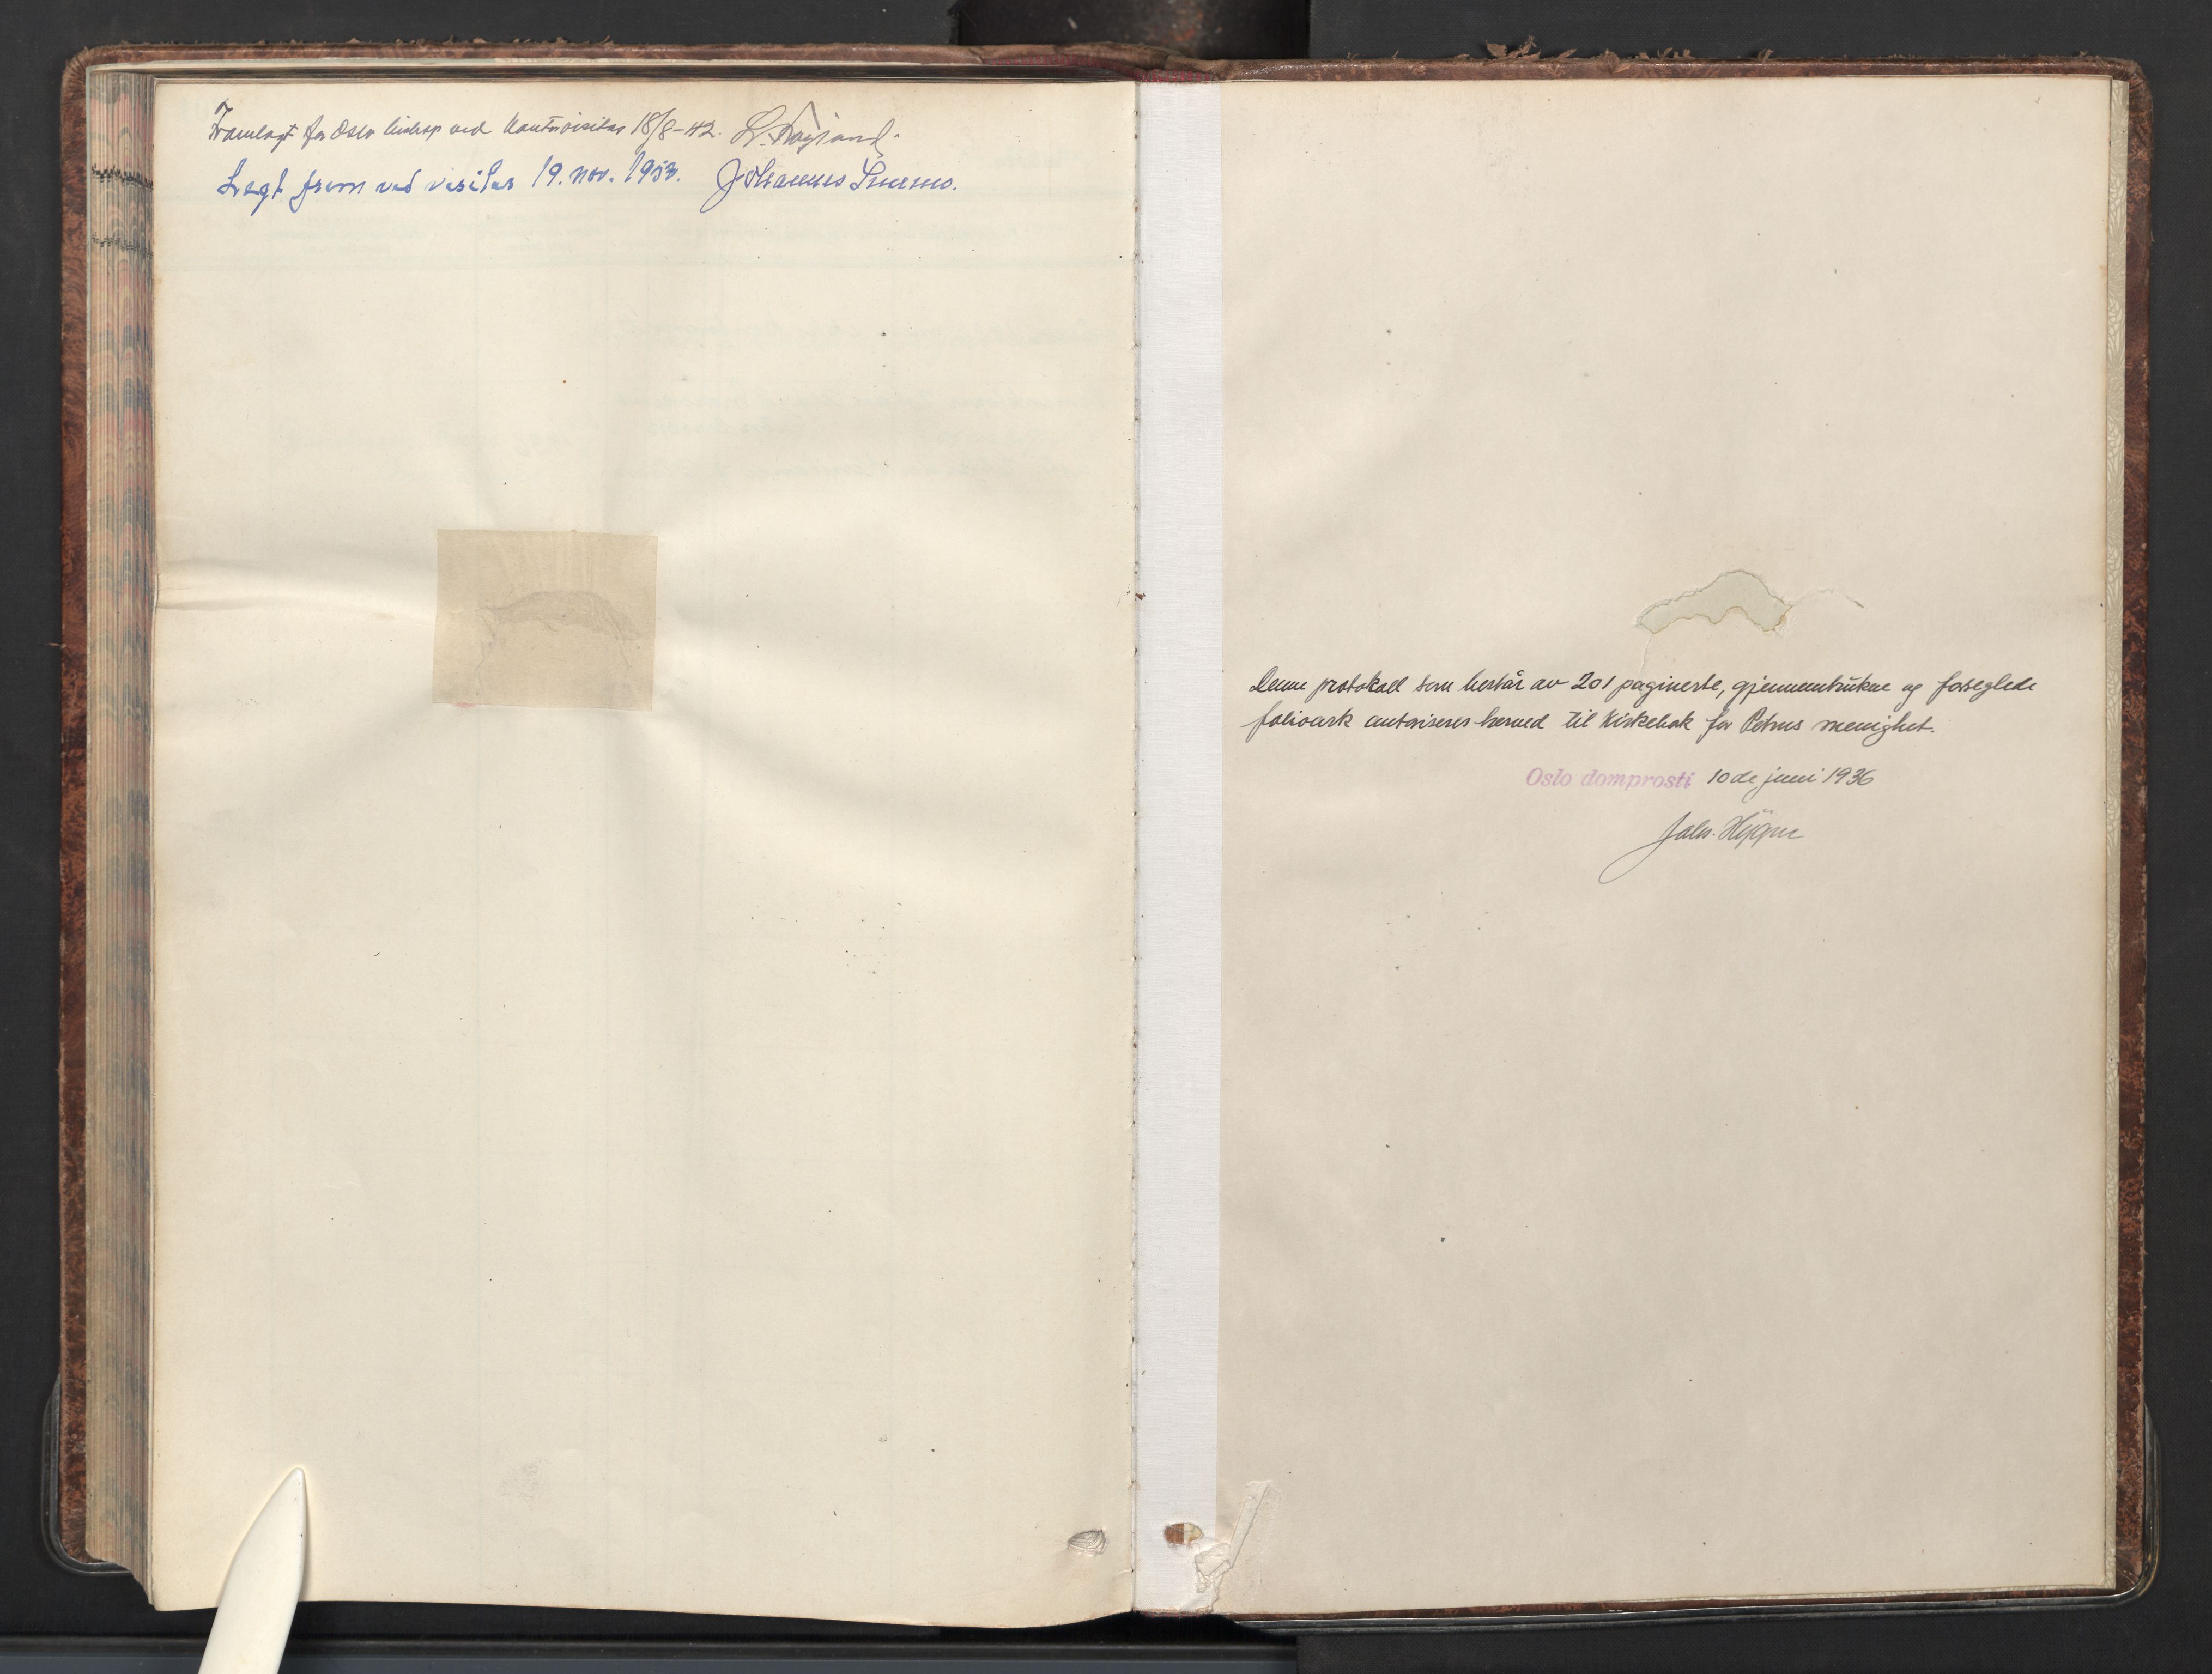 Framlagt for Oslo biskop ved kontorvisitas 18/8-42. L. Frøyland.
Lagt frem ved visitas 19. nov. 1953. Johannes Smemo.
Denne protokoll som består av 201 paginerte, gjennemtrukne og forseglede
folioark autoriseres herved til kirkebok for Petrus menighet.
Oslo domprosti 10de juni 1936
Johs. Hygen